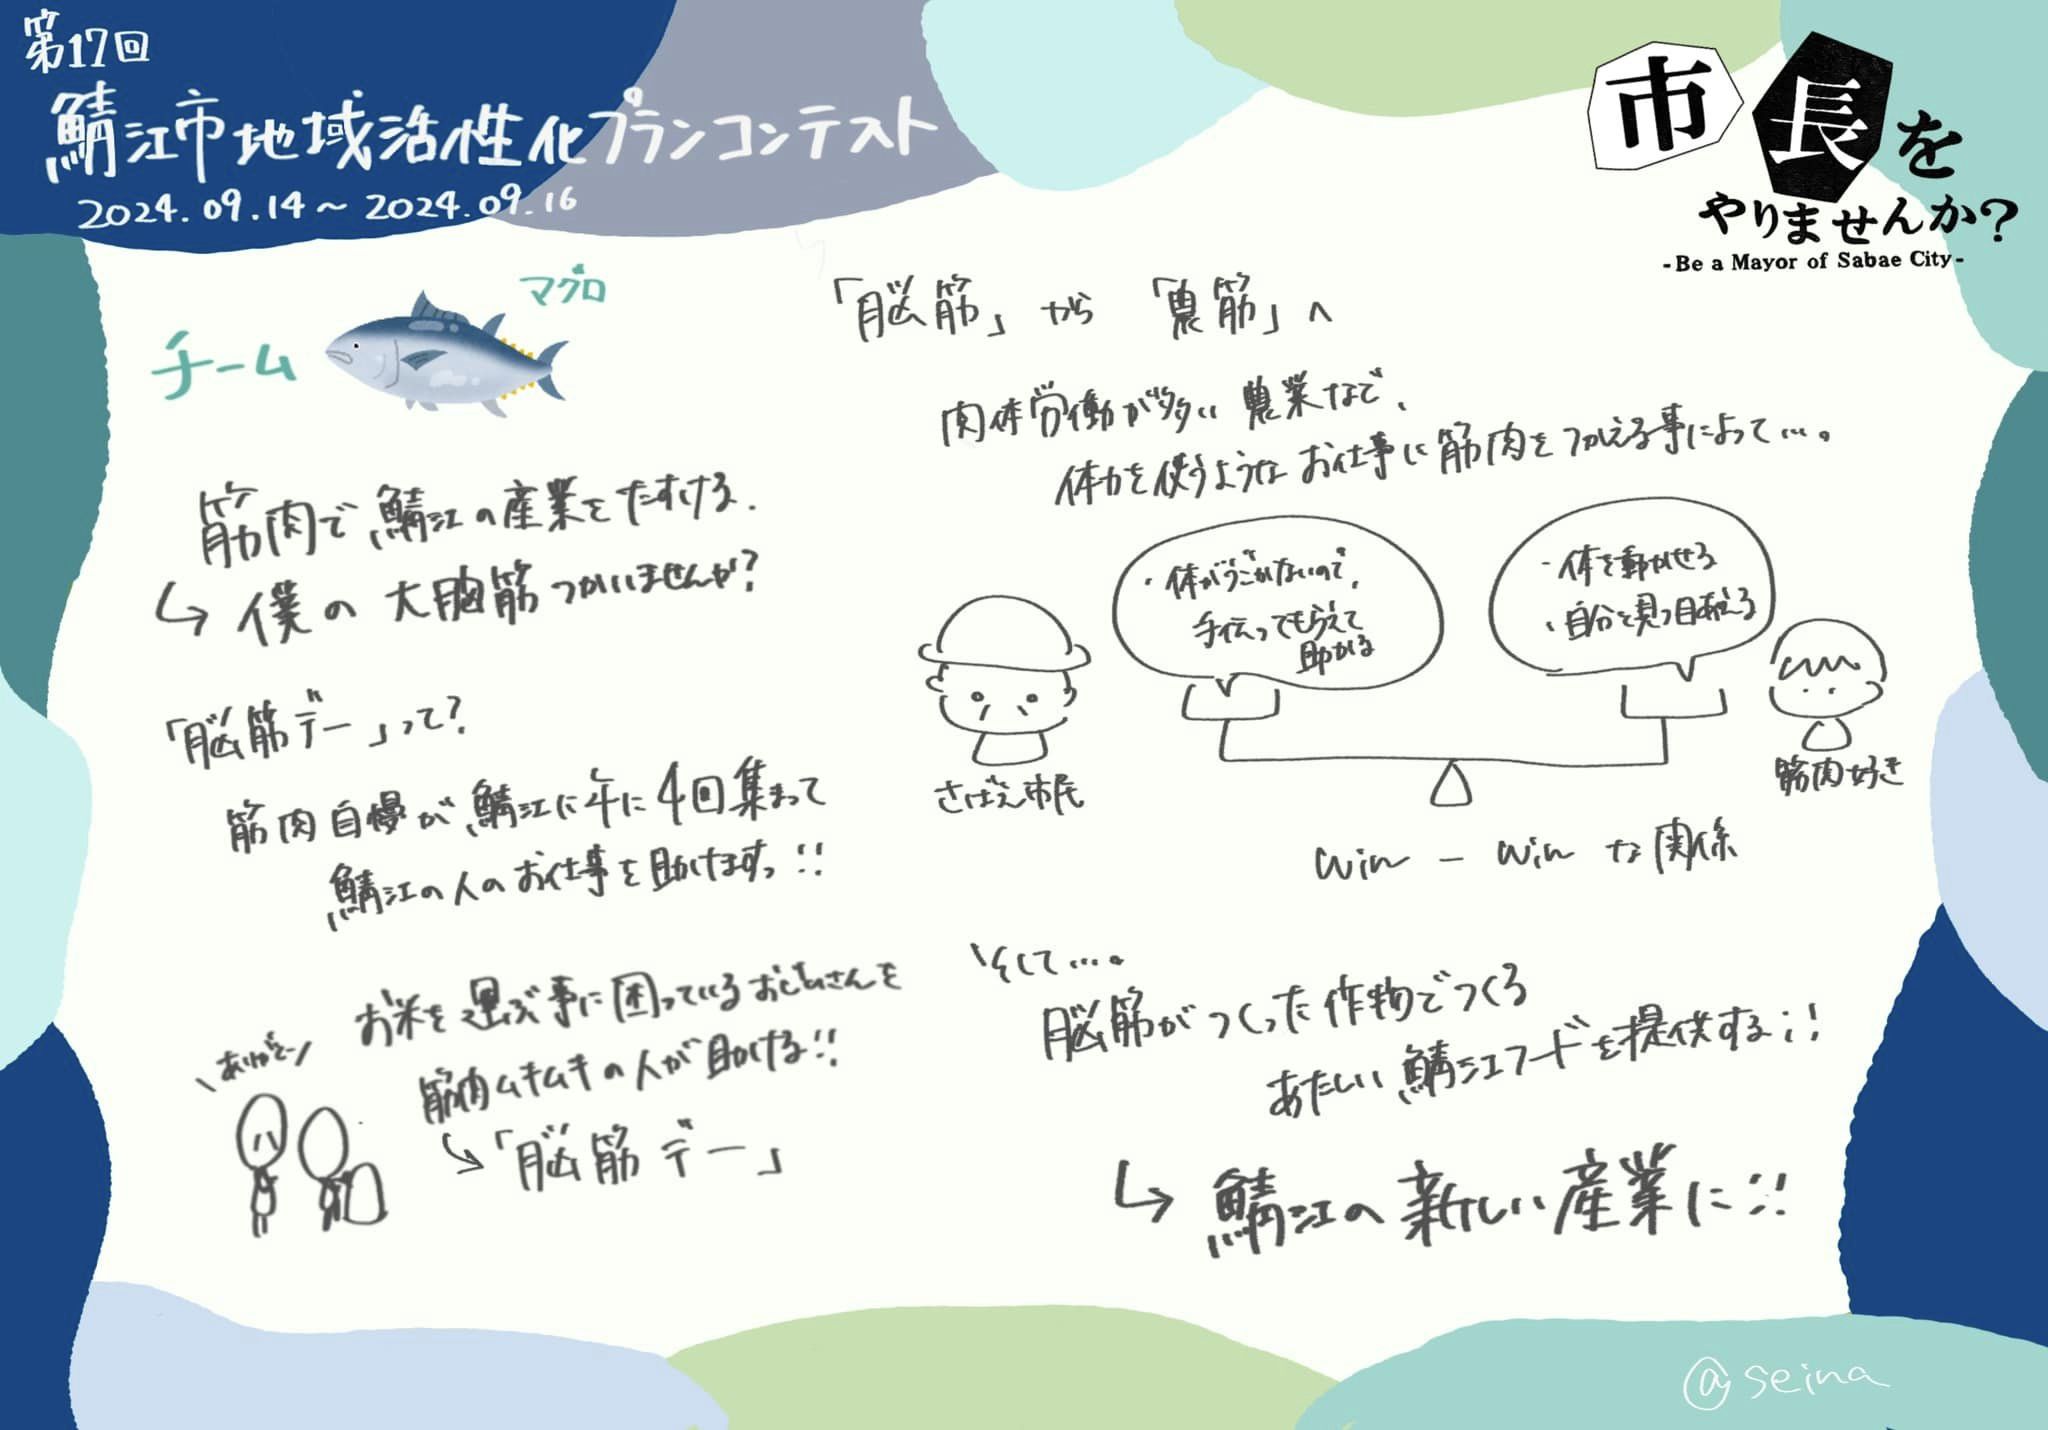 第17回
鯖江市地域活性化プランコンテスト
2024.09.14～2024.09.16
市長を
やりませんか?
-Be a Mayor of Sabae City-
チーム
マグロ
筋肉で鯖江の産業をたすける.
↳ 僕の大脳筋つかいませんか?
「脳筋デー」って?
筋肉自慢が鯖江に年に4回集まって
鯖江の人のお仕事を助けますっ!!
お米を運ぶ事に困っているおじいさんを
筋肉ムキムキの人が助ける!!
↳「脳筋デー」
\ありがとー/
「脳筋」から「農筋」へ
肉体労働が多い農業などで、
体力を使うようなお仕事に筋肉をつかえる事によって…。
・体がうごかないので、
手伝ってもらえて
助かる
・体を動かせる
・自分を見つめ直せる
さばえ市民
筋肉好き
win-winな関係
\そして…。
脳筋がつくった作物でつくる
あたらしい鯖江フードを提供する!!
↳ 鯖江の新しい産業に!!
@seina